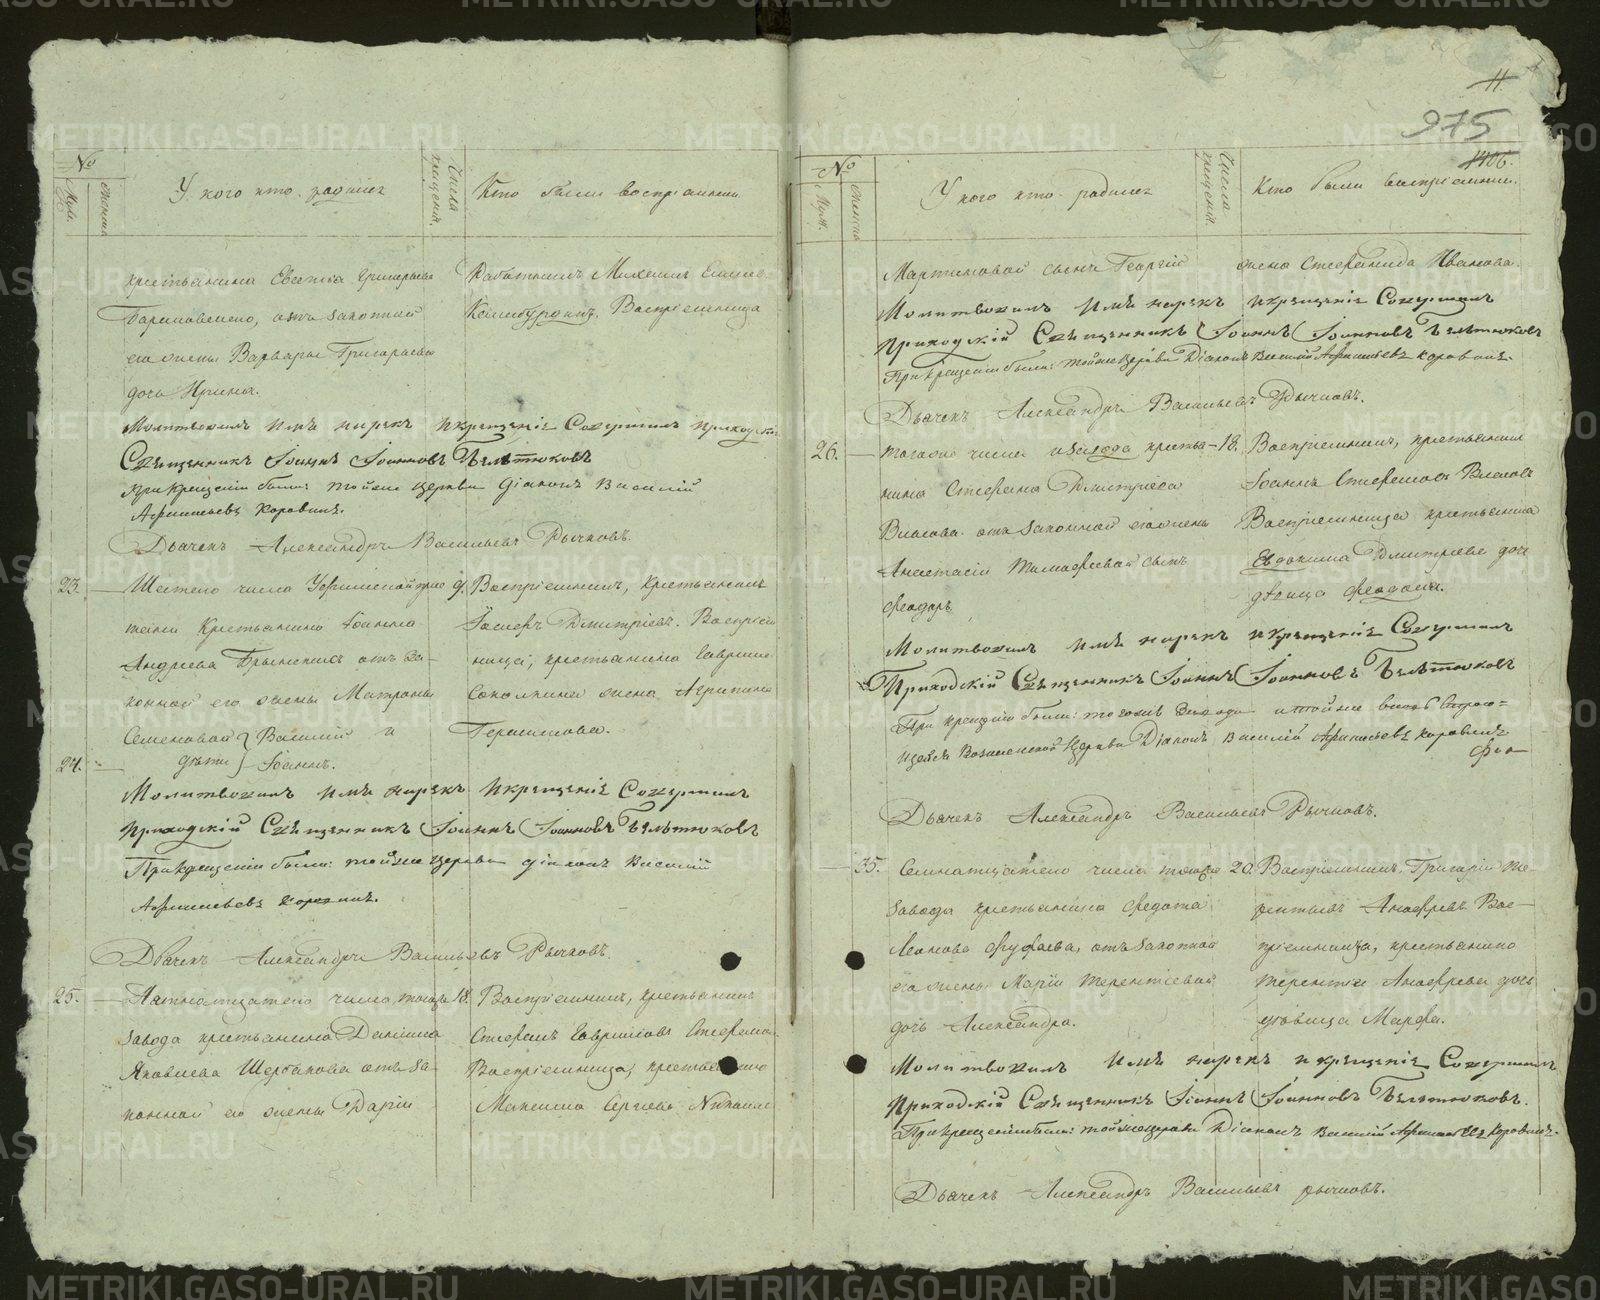 №
Муж.
Женск.
У кого кто родился
Числа крещенія.
Кто были воспріемники.
крестьянина Григорьева
законной
его жены Варвары Григорьевой
дочь Ирина.
Работникъ Михаилъ
Воспріемница
Молитвовалъ имѣ нарекъ и крещеніе Совершилъ приходскій
Священникъ Іоаннъ Іоанновъ Бѣлѣтюковъ
При крещеніи были: тойже церкви Діаконъ Василій
Афанасьевъ Коровинъ.
Дьячекъ Александръ Васильевъ Рычковъ.
23. Шестаго числа
крестьянина Іоанна
Андреева отъ за-
конной его жены Матроны
Семеновой Василій и
дѣти Іоаннъ.
9. Воспріемникъ, крестьянинъ
Дмитріевъ. Воспріем
ница, крестьянина
жена Агрипина
Герасимова.
24.
Молитвовалъ имѣ нарекъ и крещеніе Совершилъ
приходскій Священникъ Іоаннъ Іоанновъ Бѣлѣтюковъ
При крещеніи были: тойже церкви діаконъ Василій
Афанасьевъ Коровинъ.
Дьячекъ Александръ Васильевъ Рычковъ.
25. Пятнатцатаго числа тогоже
завода крестьянина Даніила
Яковлева Щербакова отъ за-
конной его жены Даріи
18. Воспріемникъ, крестьянинъ
Стефанъ Гавриловъ
Воспріемница, крестьянина
Максима Сергеева
11.
975
1406.
№
Муж.
Женск.
У кого кто родился
Числа крещенія.
Кто были воспріемники.
Мартиновой сынъ Георгій
жена Стефанида Иванова.
Молитвовалъ имѣ нарекъ и крещеніе Совершилъ
приходскій Священникъ Іоаннъ Іоанновъ Бѣлѣтюковъ
При крещеніи были: тойже церкви Діаконъ Василій Афанасьевъ Коровинъ.
Дьячекъ Александръ Васильевъ Рычковъ.
26. тогоже числа и завода крестья-
нина Стефана Дмитріева
Власова отъ законной его жены
Анастасіи Тимофеевой сынъ
Феодоръ
18. Воспріемникъ, крестьянинъ
Іоаннъ Стефановъ Власовъ
Воспріемница крестьянина
Евдокима Дмитріева дочь
дѣвица Феодосія.
Молитвовалъ имѣ нарекъ и крещеніе Совершилъ
Приходскій Священникъ Іоаннъ Іоанновъ Бѣлѣтюковъ
При крещеніи были: тогоже завода и тойже
Вознесенской Церкви Діаконъ Василій Афанасьевъ Коровинъ
Дьячекъ Александръ Васильевъ Рычковъ.
35. Семнатцатаго числа тогоже
завода крестьянина Федота
Леонова отъ законной
его жены Маріи Терентіевой
дочь Александра.
20. Воспріемникъ, Григорій Те-
рентьевъ Вос-
пріемница, крестьянина
Терентія дочь
дѣвица Марфа.
Молитвовалъ имѣ нарекъ и крещеніе Совершилъ
Приходскій Священникъ Іоаннъ Іоанновъ Бѣлѣтюковъ.
При крещеніи были: тойже церкви Діаконъ Василій Афанасьевъ Коровинъ.
Дьячекъ Александръ Васильевъ Рычковъ.
METRIKI.GASO-URAL.RU